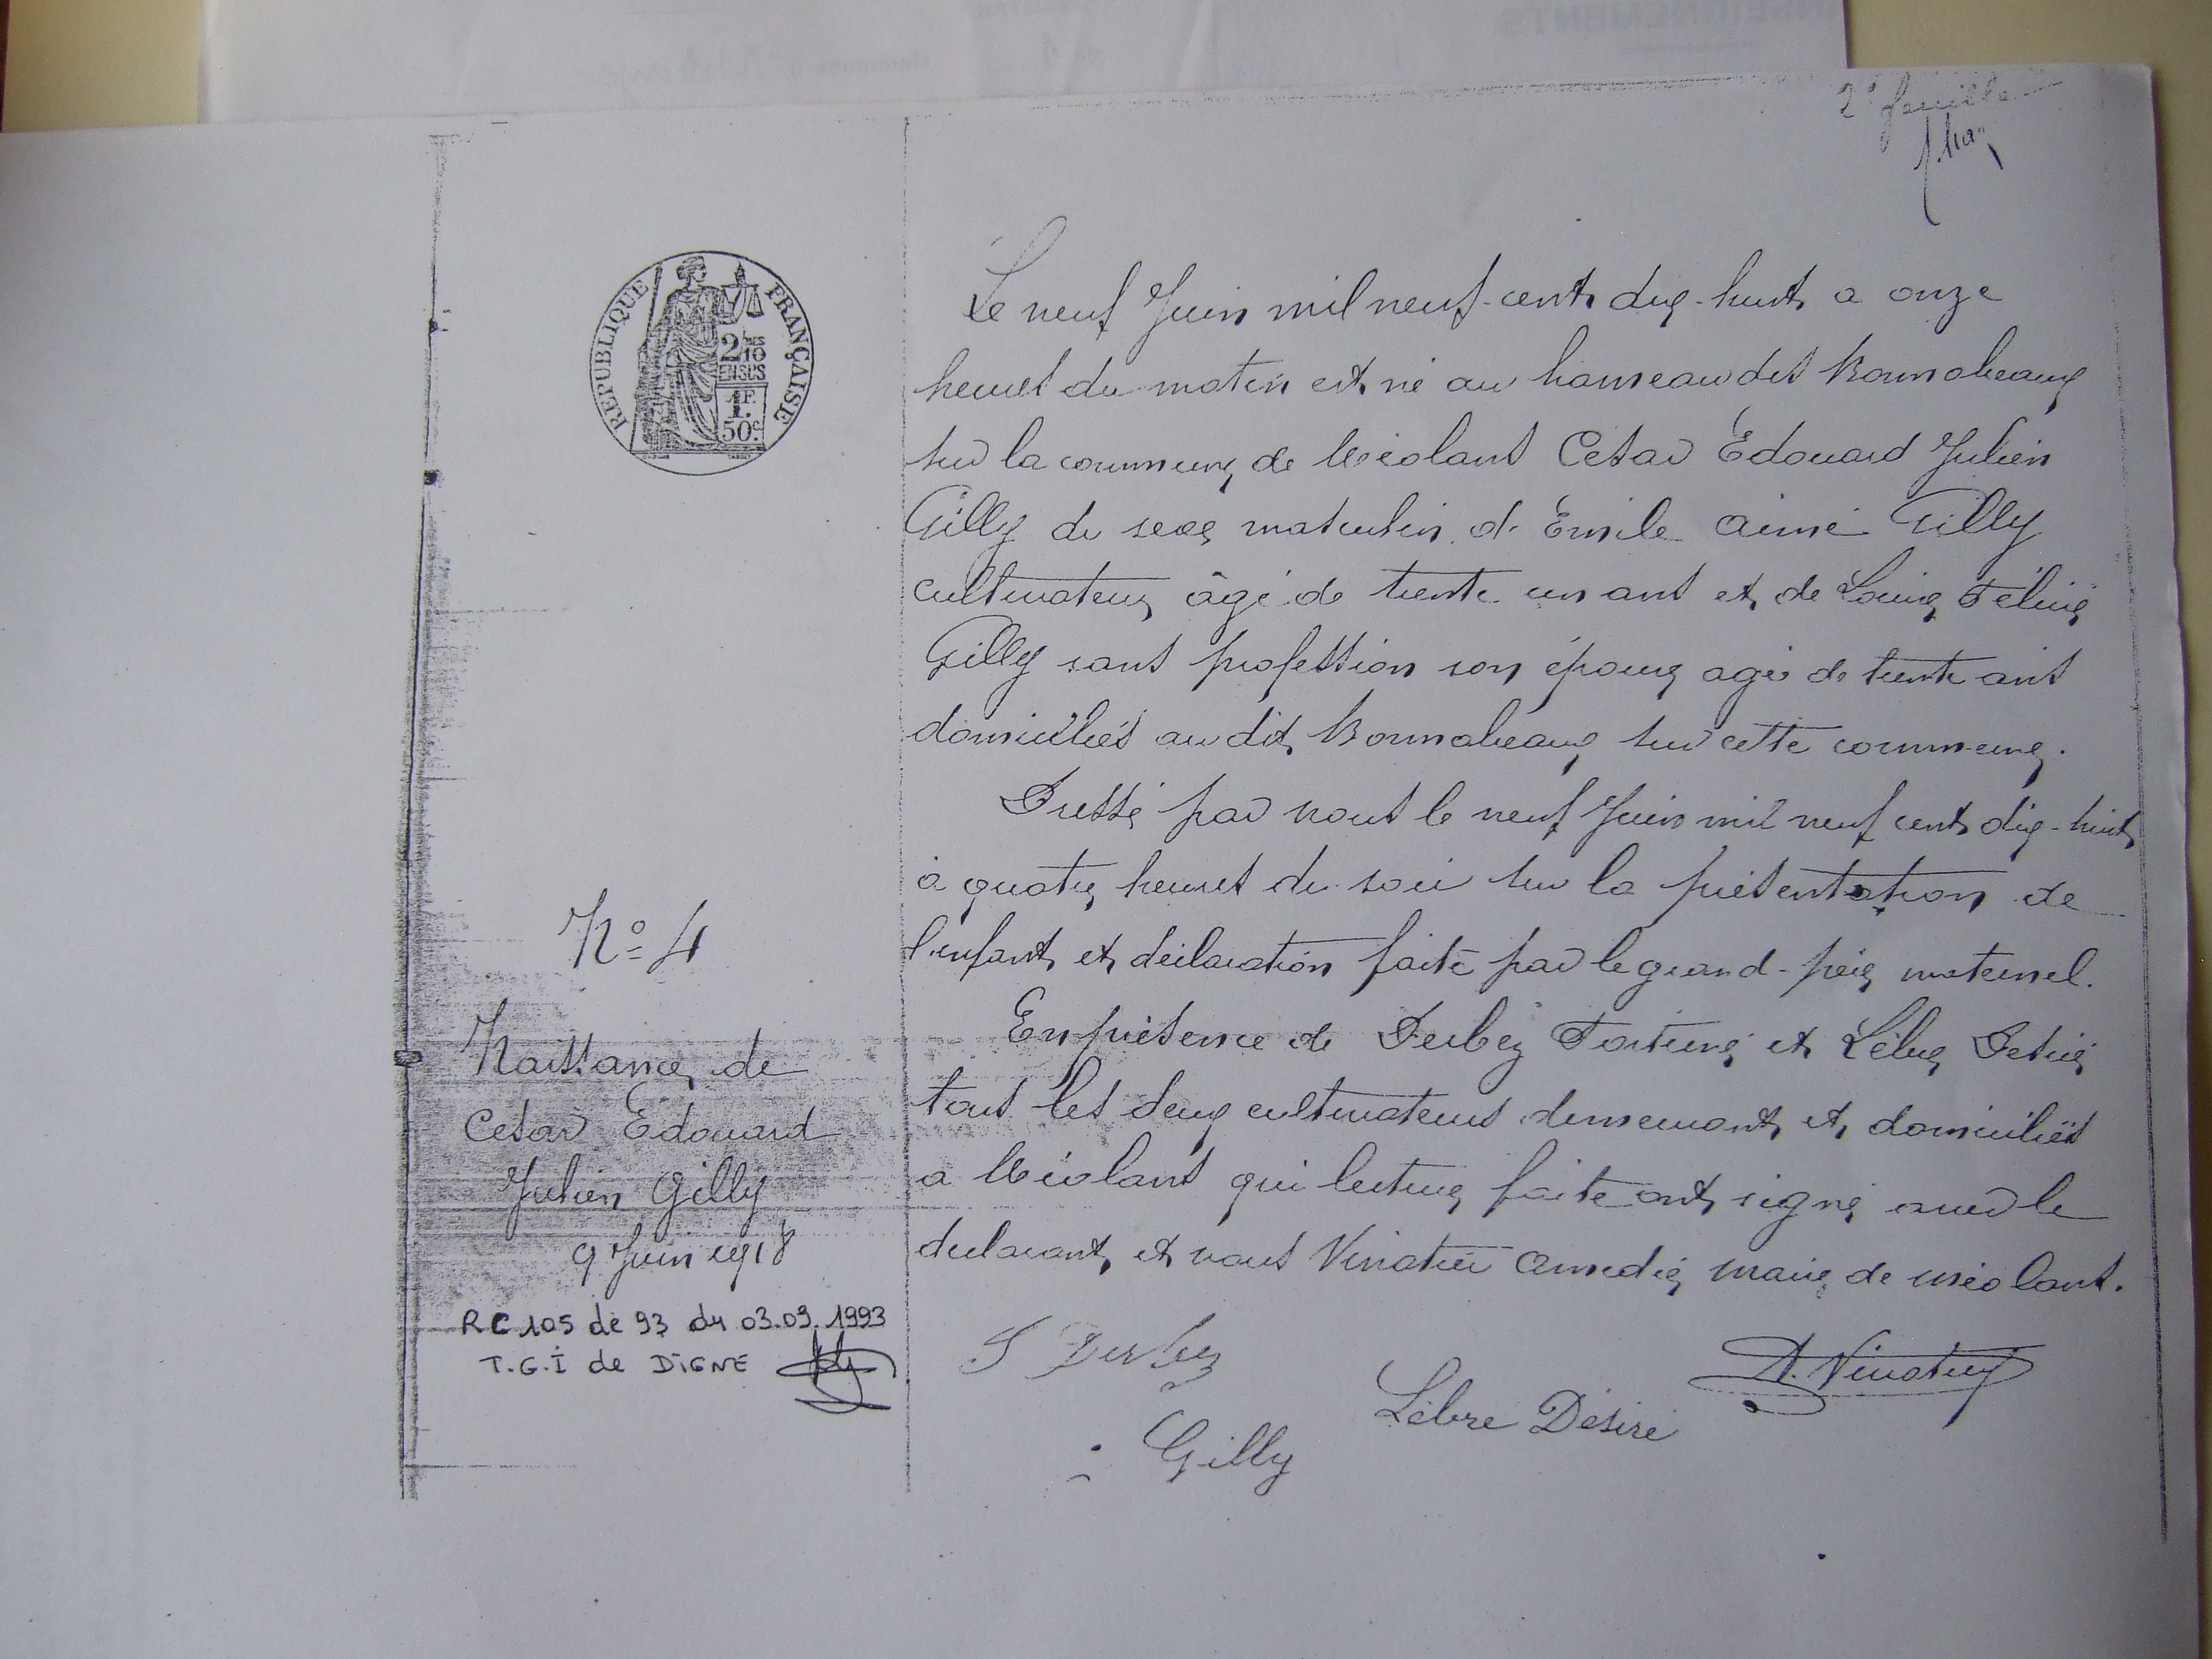 2e feuille
REPUBLIQUE FRANÇAISE
2/10mes
EN SUS
1F.
50c.
Le neuf Juin mil neuf-cent dix-huit a onze
heures du matin est né au hameau des Bonnabeaux
sur la commune de Méolans Cesar Edouard Julien
Gilly du sexe masculin de Emile Aimé Gilly
cultivateur âgé de trente un ans et de Louise Féline
Gilly sans profession son épouse agé de trente ans
domiciliés au dit Bonnabeaux sur cette commune.
Dressé par nous le neuf Juin mil neuf cent dix-huit
à quatre heures du soir sur la présentation de
l'enfant et déclaration faite par le grand-père maternel.
En présence de Derbez Fortuné et Lèbre Désiré
tous les deux cultivateurs demeurant et domiciliés
a Méolans qui lecture faite ont signé avec le
declarant et nous Vinatier Amedée maire de méolans.
No 4
Naissance de
Cesar Edouard
Julien Gilly
9 Juin 1918
RC 105 de 93 du 03.09.1993
T.G.I de DIGNE
Derbez
A. Vinatier
Lèbre Désiré
Gilly